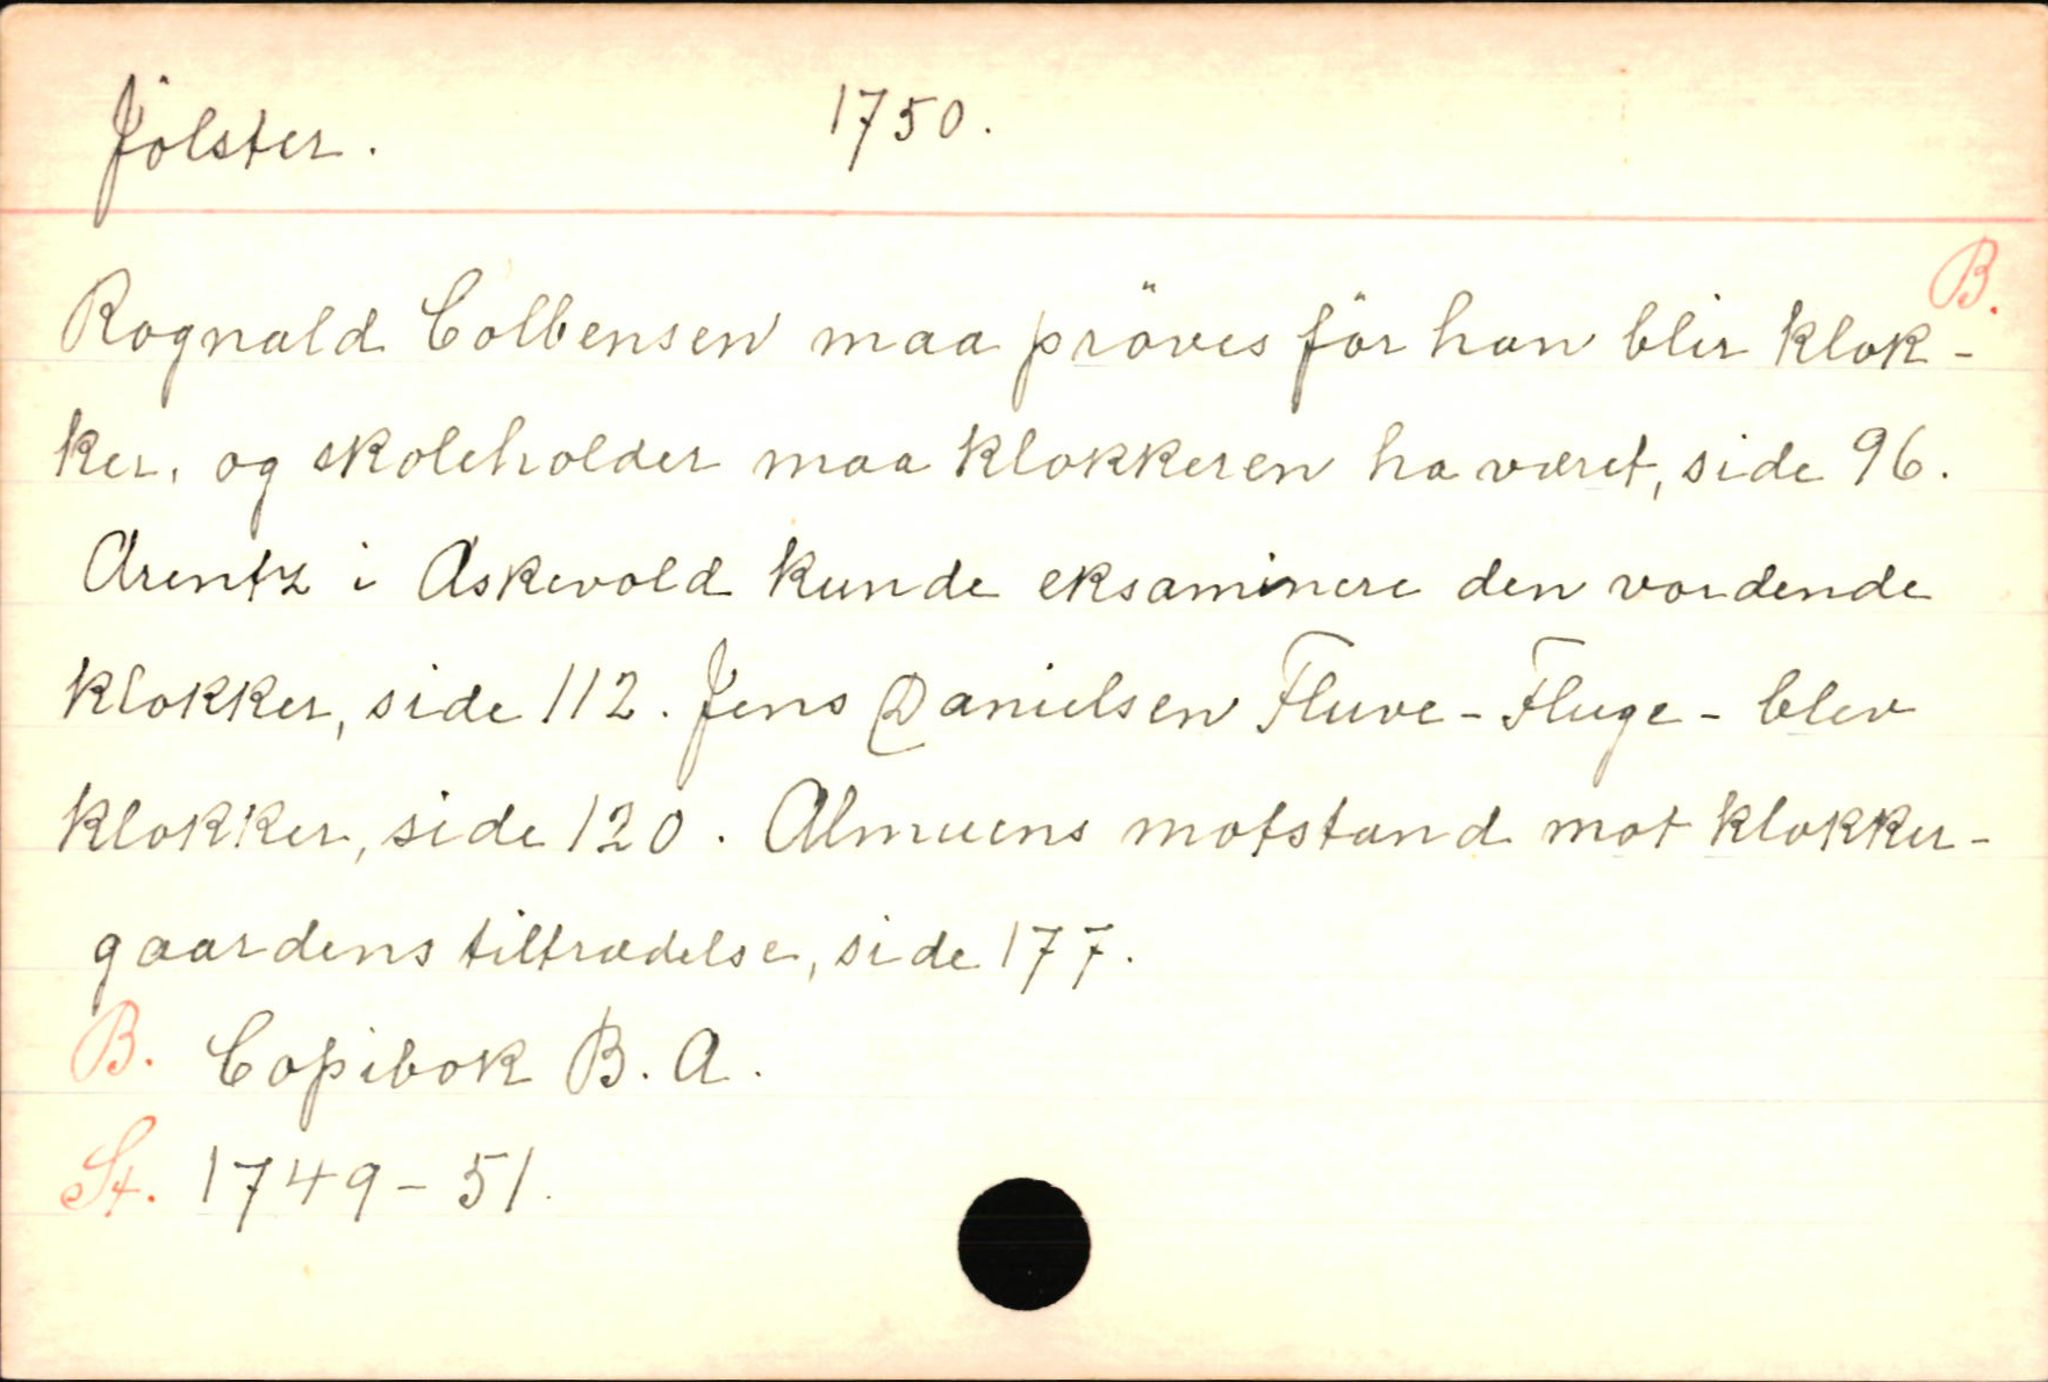 Jölster. 1750.
B.
Rognald Colbensen maa pröves för han blir klok-
ker, og skoleholder maa klokkeren ha været, side 96.
Arentz i Askevold kunde eksaminere den vordende
klokker, side 112. Jens Danielsen Fluve - Fluge - blev
klokker, side 120. Almuens motstand mot klokker-
gaardens tiltrædelse, side 177.
B. Copibok B. A.
St. 1749-51.